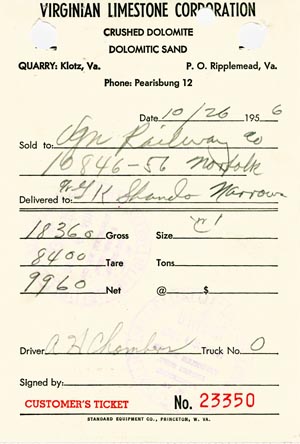 VIRGINIAN LIMESTONE CORPORATION
CRUSHED DOLOMITE
DOLOMITIC SAND
QUARRY: Klotz, Va. P. O. Ripplemead, Va.
Phone: Pearisburg 12
Date 10/26 1956
Sold to: Railway Co
10846-56 Norfolk
Delivered to: Narrows
18360 Gross Size
8400 Tare Tons
9960 Net @ $
Driver A H Truck No. 0
Signed by:
CUSTOMER'S TICKET No. 23350
STANDARD EQUIPMENT CO., PRINCETON, W. VA.